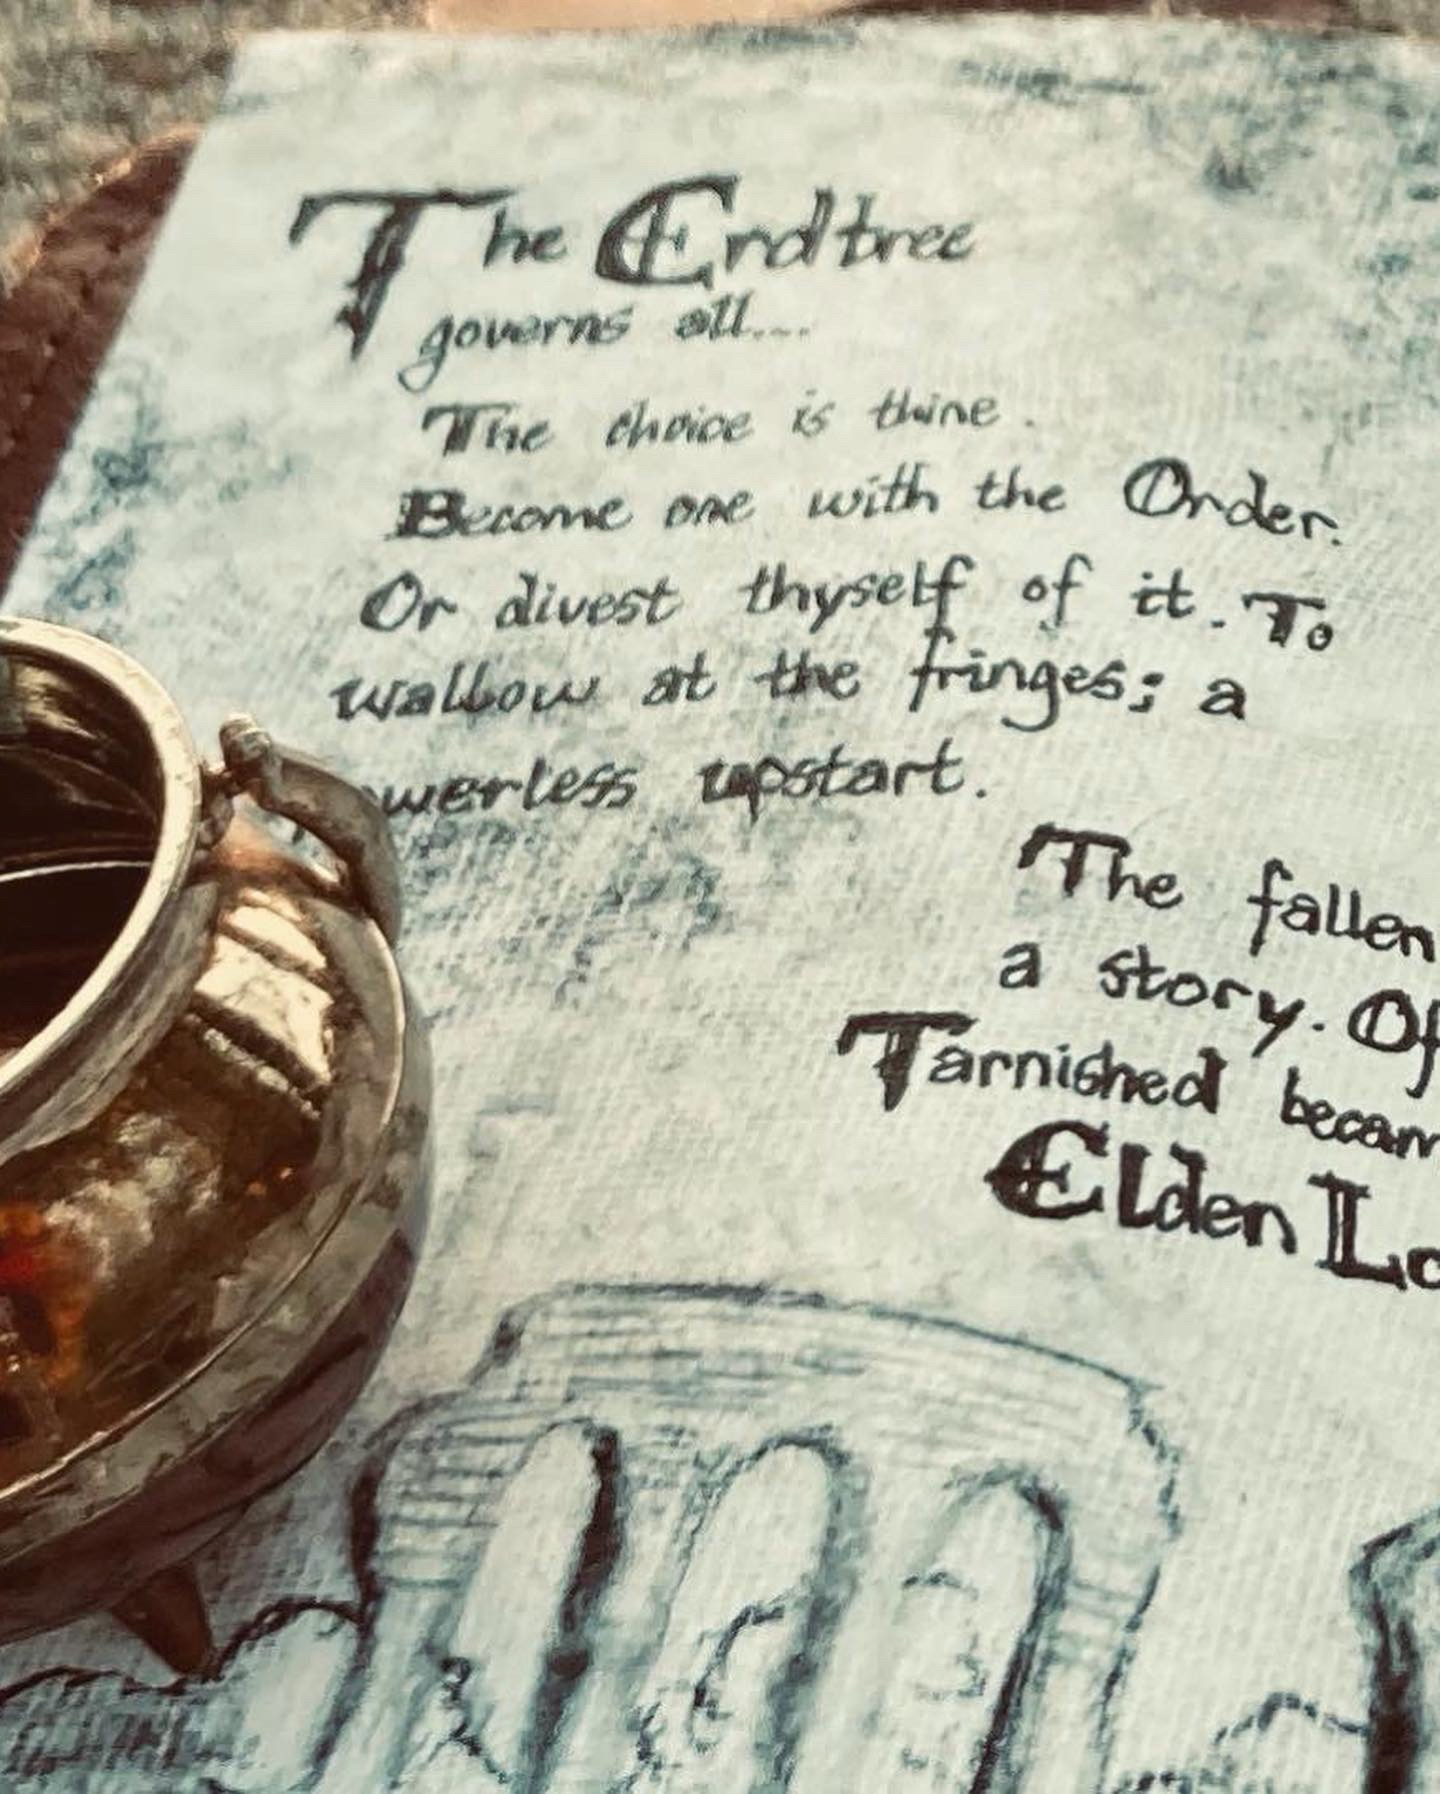 The Erdtree
governs all....
The choice is thine.
Become one with the Order.
Or divest thyself of it. To
wallow at the fringes; a
werless upstart.
The fallen
a story. Of
Tarnished becam
Elden Lo